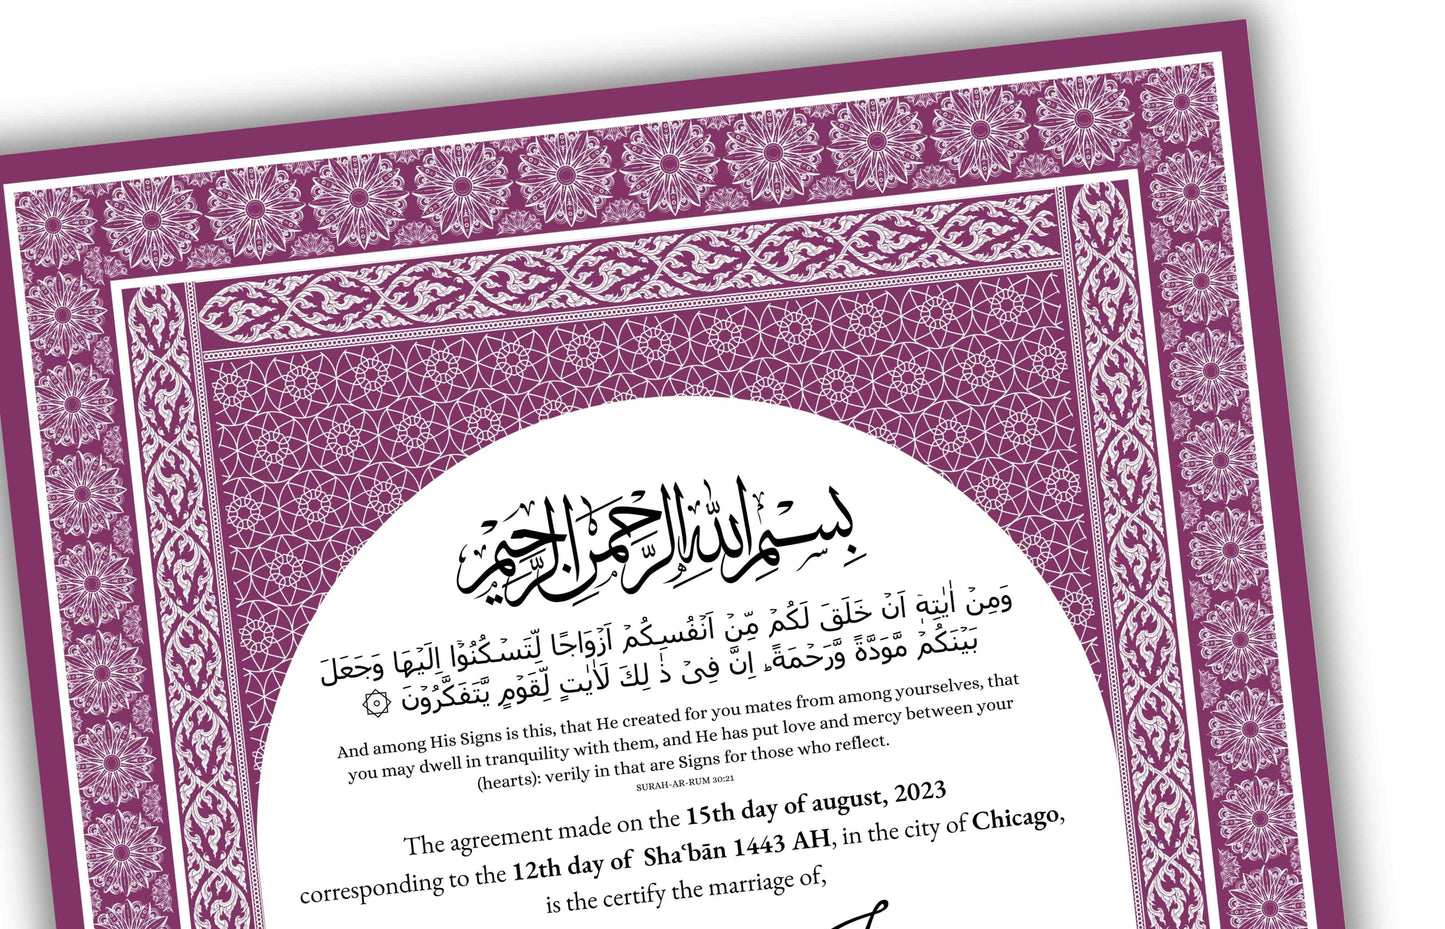 بِسْمِ اللهِ الرَّحْمٰنِ الرَّحِيْمِ
وَمِنۡ اٰيٰتِهٖۤ اَنۡ خَلَقَ لَكُمۡ مِّنۡ اَنۡفُسِكُمۡ اَزۡوَاجًا لِّتَسۡكُنُوۡۤا اِلَيۡهَا وَجَعَلَ
بَيۡنَكُمۡ مَّوَدَّةً وَّرَحۡمَةً ؕ اِنَّ فِىۡ ذٰ لِكَ لَاٰيٰتٍ لِّقَوۡمٍ يَّتَفَكَّرُوۡنَ ۞
And among His Signs is this, that He created for you mates from among yourselves, that
you may dwell in tranquility with them, and He has put love and mercy between your
(hearts): verily in that are Signs for those who reflect.
SURAH-AR-RUM 30:21
The agreement made on the 15th day of august, 2023
corresponding to the 12th day of Shaʿbān 1443 AH, in the city of Chicago,
is the certify the marriage of,